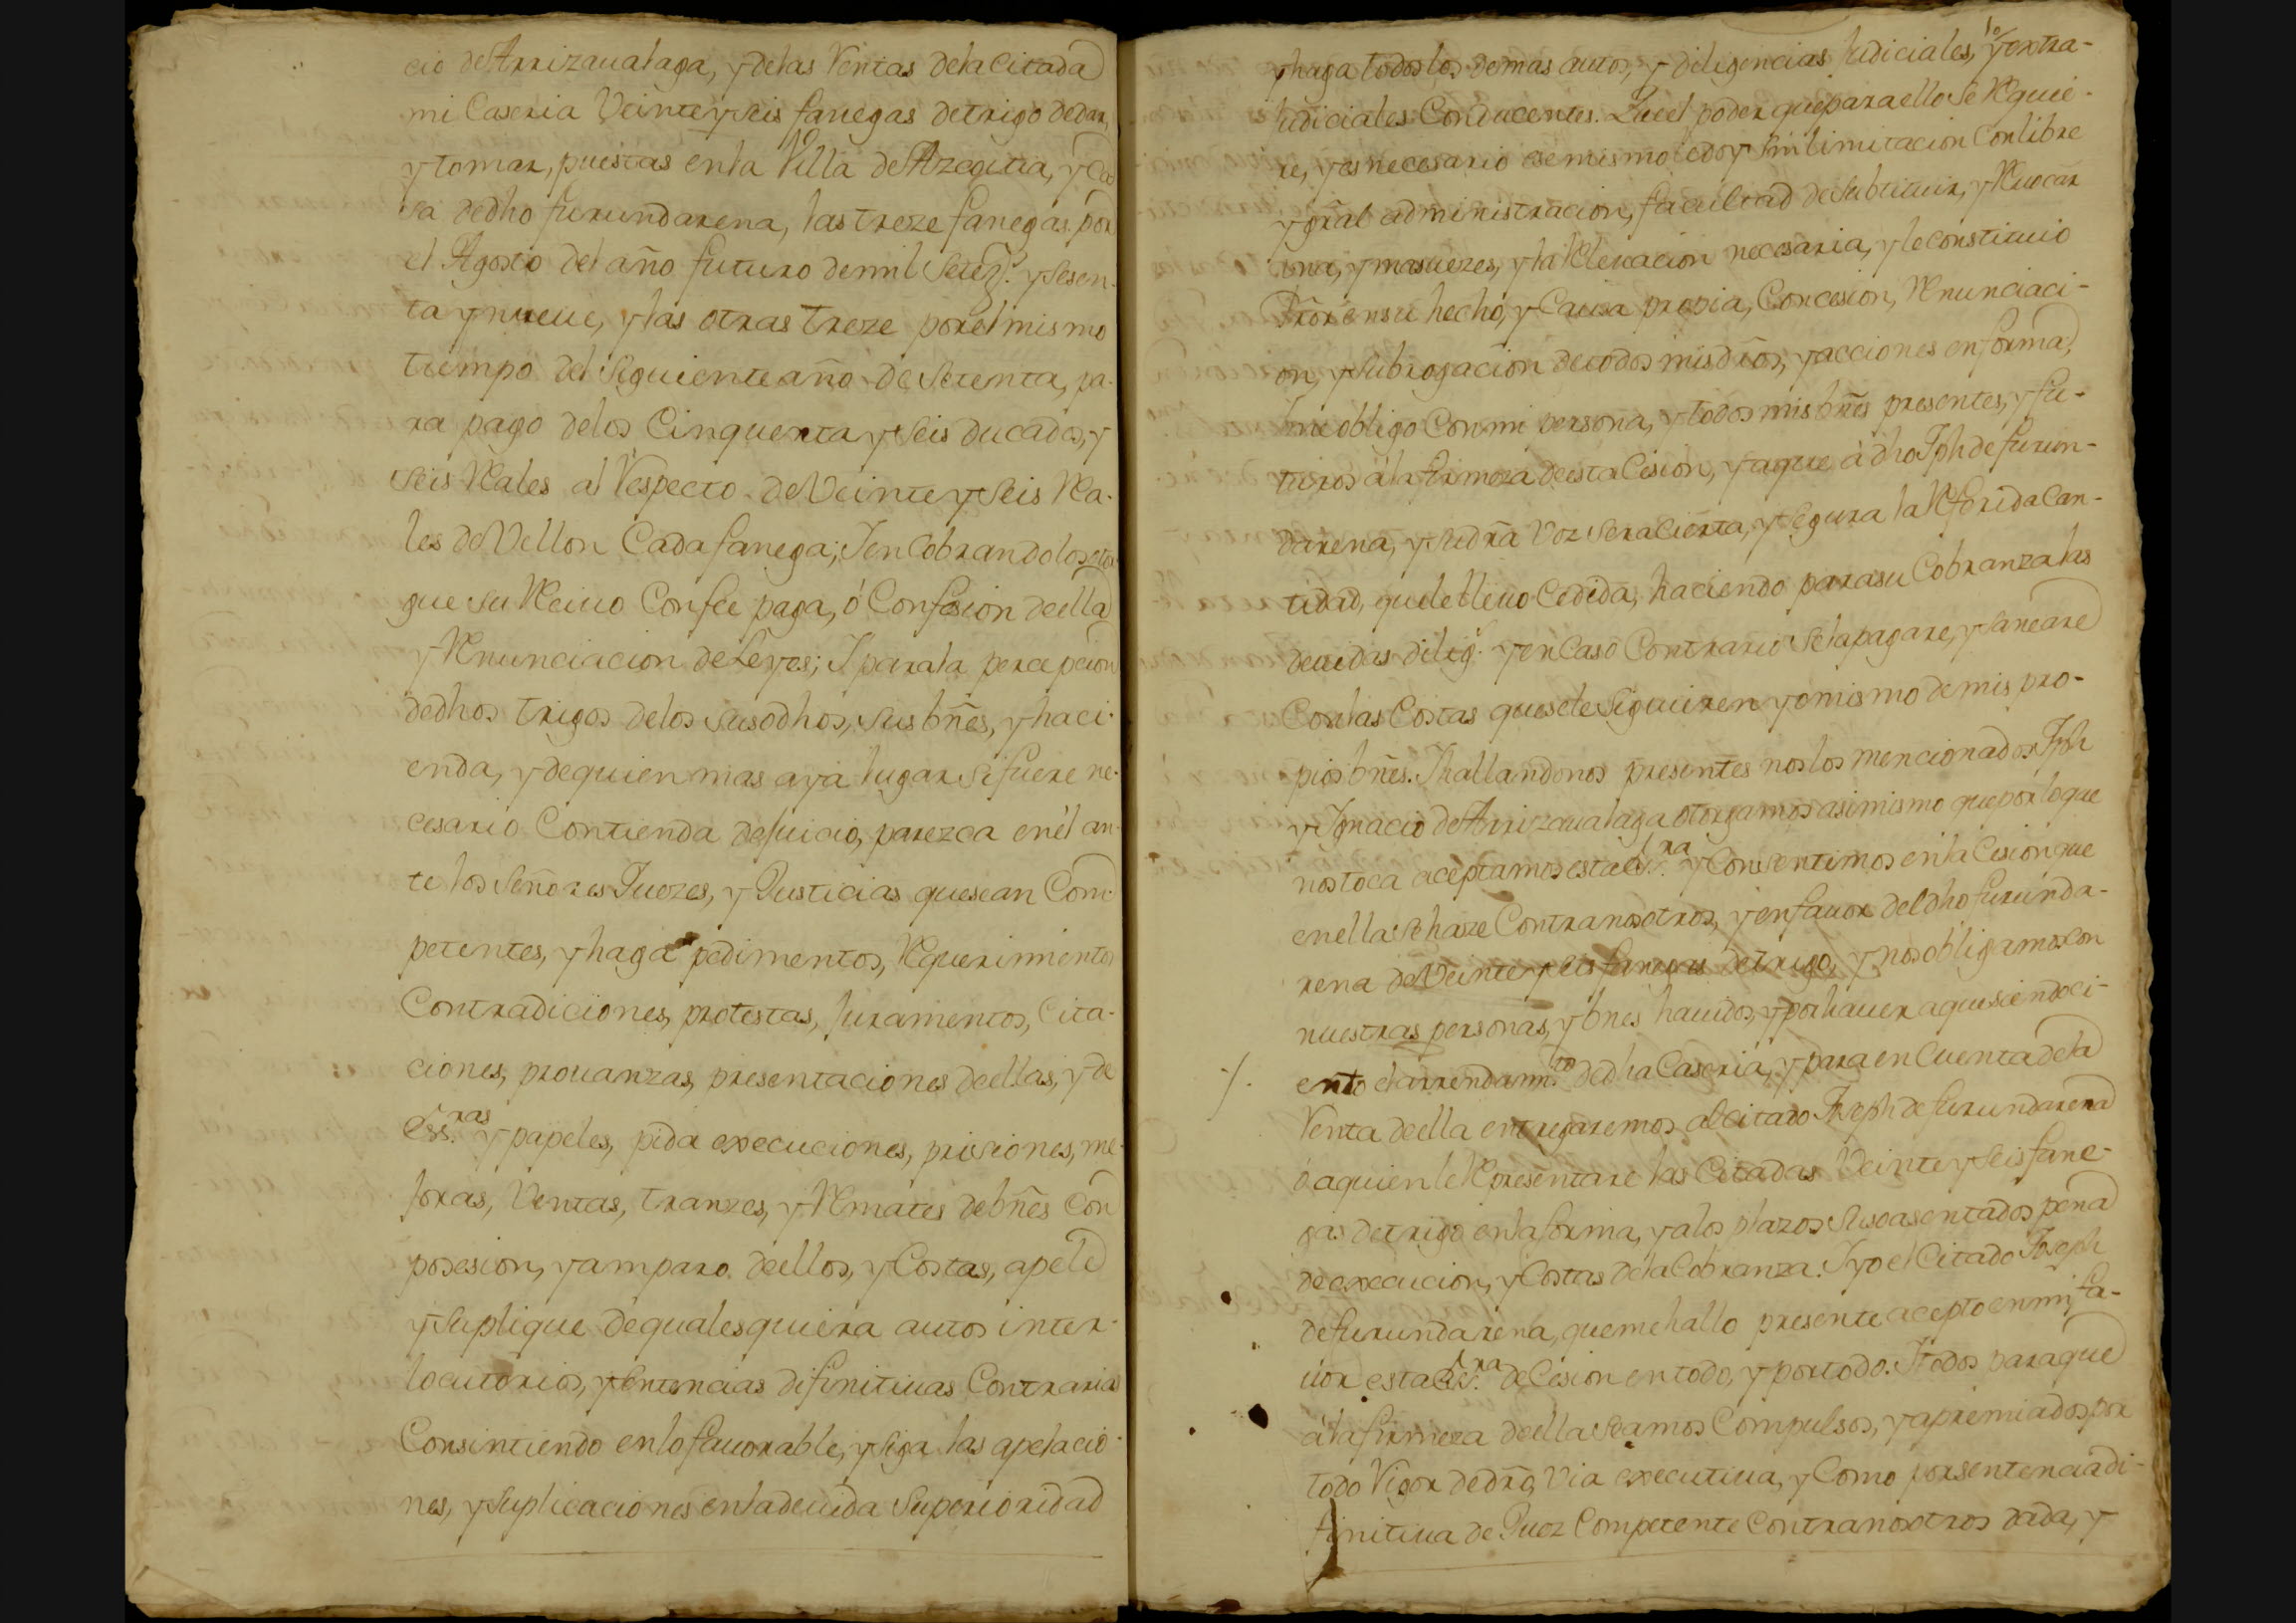 cio de Arrizaualaga, y de las Ventas de la Citada
mi Caseria Veinte y seis fanegas de trigo de dar,
y tomar, puestas en la Villa de Azcoitia, y Ca
sa de dho furundarena, las treze fanegas por
el Agosto del año futuro de mil setez.s y sesen-
ta y nueue, y las otras treze por el mismo
tiempo del siguiente año de setenta, pa-
ra pago de los Cinquenta y seis ducados, y
seis Reales al Respecto de Veinte y seis Rea-
les de Vellon Cada fanega; I en Cobrandolos otor
gue su Reciuo Con fee paga, ó Confesion de ella
y Renunciacion de Leyes; I para la percepcion
de dhos trigos de los susodhos, sus bñes, y haci-
enda, y de quien mas aya lugar si fuere ne-
cesario Contienda de Juicio, parezca en él an-
te los Señores Juezes, y Justicias que sean Com-
petentes, y haga pedimentos, Requerimientos
Contradiciones, protestas, Juramentos, Cita-
ciones, prouanzas, presentaciones de ellas, y de
Ess.ras y papeles, pida execuciones, prisiones, me-
joras, Ventas, tranzes, y Remates de bñes Con
posesion, y amparo de ellos, y Costas, apele
y suplique de qualesquiera autos inter-
locutorios, y sentencias difinitiuas Contrarias
Consintiendo en lo fauorable, y siga las apelacio-
nes, y suplicaciones en la deuida Superioridad
y haga todos los demas autos, y diligencias Judiciales, y extra-
Judiciales Conducentes. Que el poder que para ello se Requie-
re, y es necesario ese mismo le doy sin limitacion Con libre
y gral administracion, facultad de substituir, y Reuocar
una, y mas uezes, y la Releuacion necesaria, y le constituio
Prõr en su hecho, y Causa propia, Concesion, Renunciaci-
on, y subrogacion de todos mis dr̃os, y acciones en forma,
I me obligo Con mi persona, y todos mis bñes presentes, y fu-
turos á la firmeza de esta Cesion, y a que á dho Jph de furun-
darena, y su dr̃a Voz sera cierta, y segura la Referida Can-
tidad, que le lleuo Cedida, haciendo para su Cobranza las
deuidas dilig.s y en Caso Contrario se la pagare, y saneare
Con las Costas que se le siguieren yo mismo de mis pro-
pios bñes. I hallandonos presentes nos los mencionados Jph
y Ignacio de Arrizaualaga otorgamos asimismo que por lo que
nos toca aceptamos esta Ess.ra y Consentimos en la Cesion que
en ella se haze Contra nosotros, y en fauor del dho furunda-
rena de Veinte y seis fanegas de trigo, y nos obligamos con
nuestras personas, y bñes hauidos, y por hauer a que siendo ci-
erto el arrendam.to de dha Caseria, y para en Cuenta de la
Venta de ella entregaremos al citado Joseph de furundarena
ó a quien le Representare las Citadas Veinte y seis fane-
gas de trigo en la forma, y a los plazos suso asentados pena
de execucion, y Costas de la Cobranza. I yo el Citado Joseph
de furundarena, que me hallo presente acepto en mi fa-
uor esta Ess.ra de Cesion en todo, y por todo. I todos para que
á la firmeza de ella seamos Compulsos, y apremiados por
todo Vigor de dr̃o, Via executiua, y Como por sentencia di-
finitiua de Juez Competente Contra nosotros dada, y